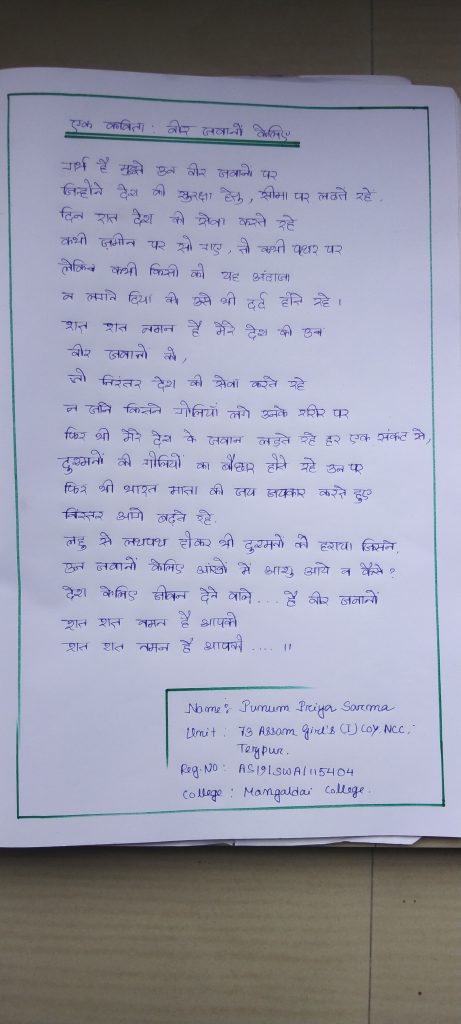 एक कविता : वीर जवानों केलिए
गर्भ है मुझे उन वीर जवानों पर
जिन्होंने देश की सुरक्षा हेतु, सीमा पर लडते रहें.
दिन रात देश की सेवा करते रहे
कभी जमीन पर सो गए, तो कभी पथर पर
लेकिन कभी किसी को यह अंदाजा
न लगने दिया की उसे भी दर्द होते रहे।
शत शत नमन है मेरे देश की उन
वीर जवानों को,
जो निरंतर देश की सेवा करते रहे
न जाने कितने गोलियां लगे उनके शरीर पर
फिर भी मेरे देश के जवान लडते रहे हर एक संकट से,
दुश्मनों की गोलियों का बौछार होते रहे उन पर
फिर भी भारत माता की जय जयकार करते हुए
निरंतर आगे बढ़ते रहे.
लहु से लथपथ होकर भी दुश्मनों को हराया जिसने,
उन जवानों केलिए आंखों में आशु आये न कैसे?
देश केलिए जीवन देने वाले... हे वीर जवानों
शत शत नमन है आपको
शत शत नमन है आपको .... ॥
Name: Punum Priya Sarma
Unit : 73 Assam Girl's (I) COY NCC,
Tezpur.
Reg. No : AS19/SWA/115404
College : Mangaldai College.